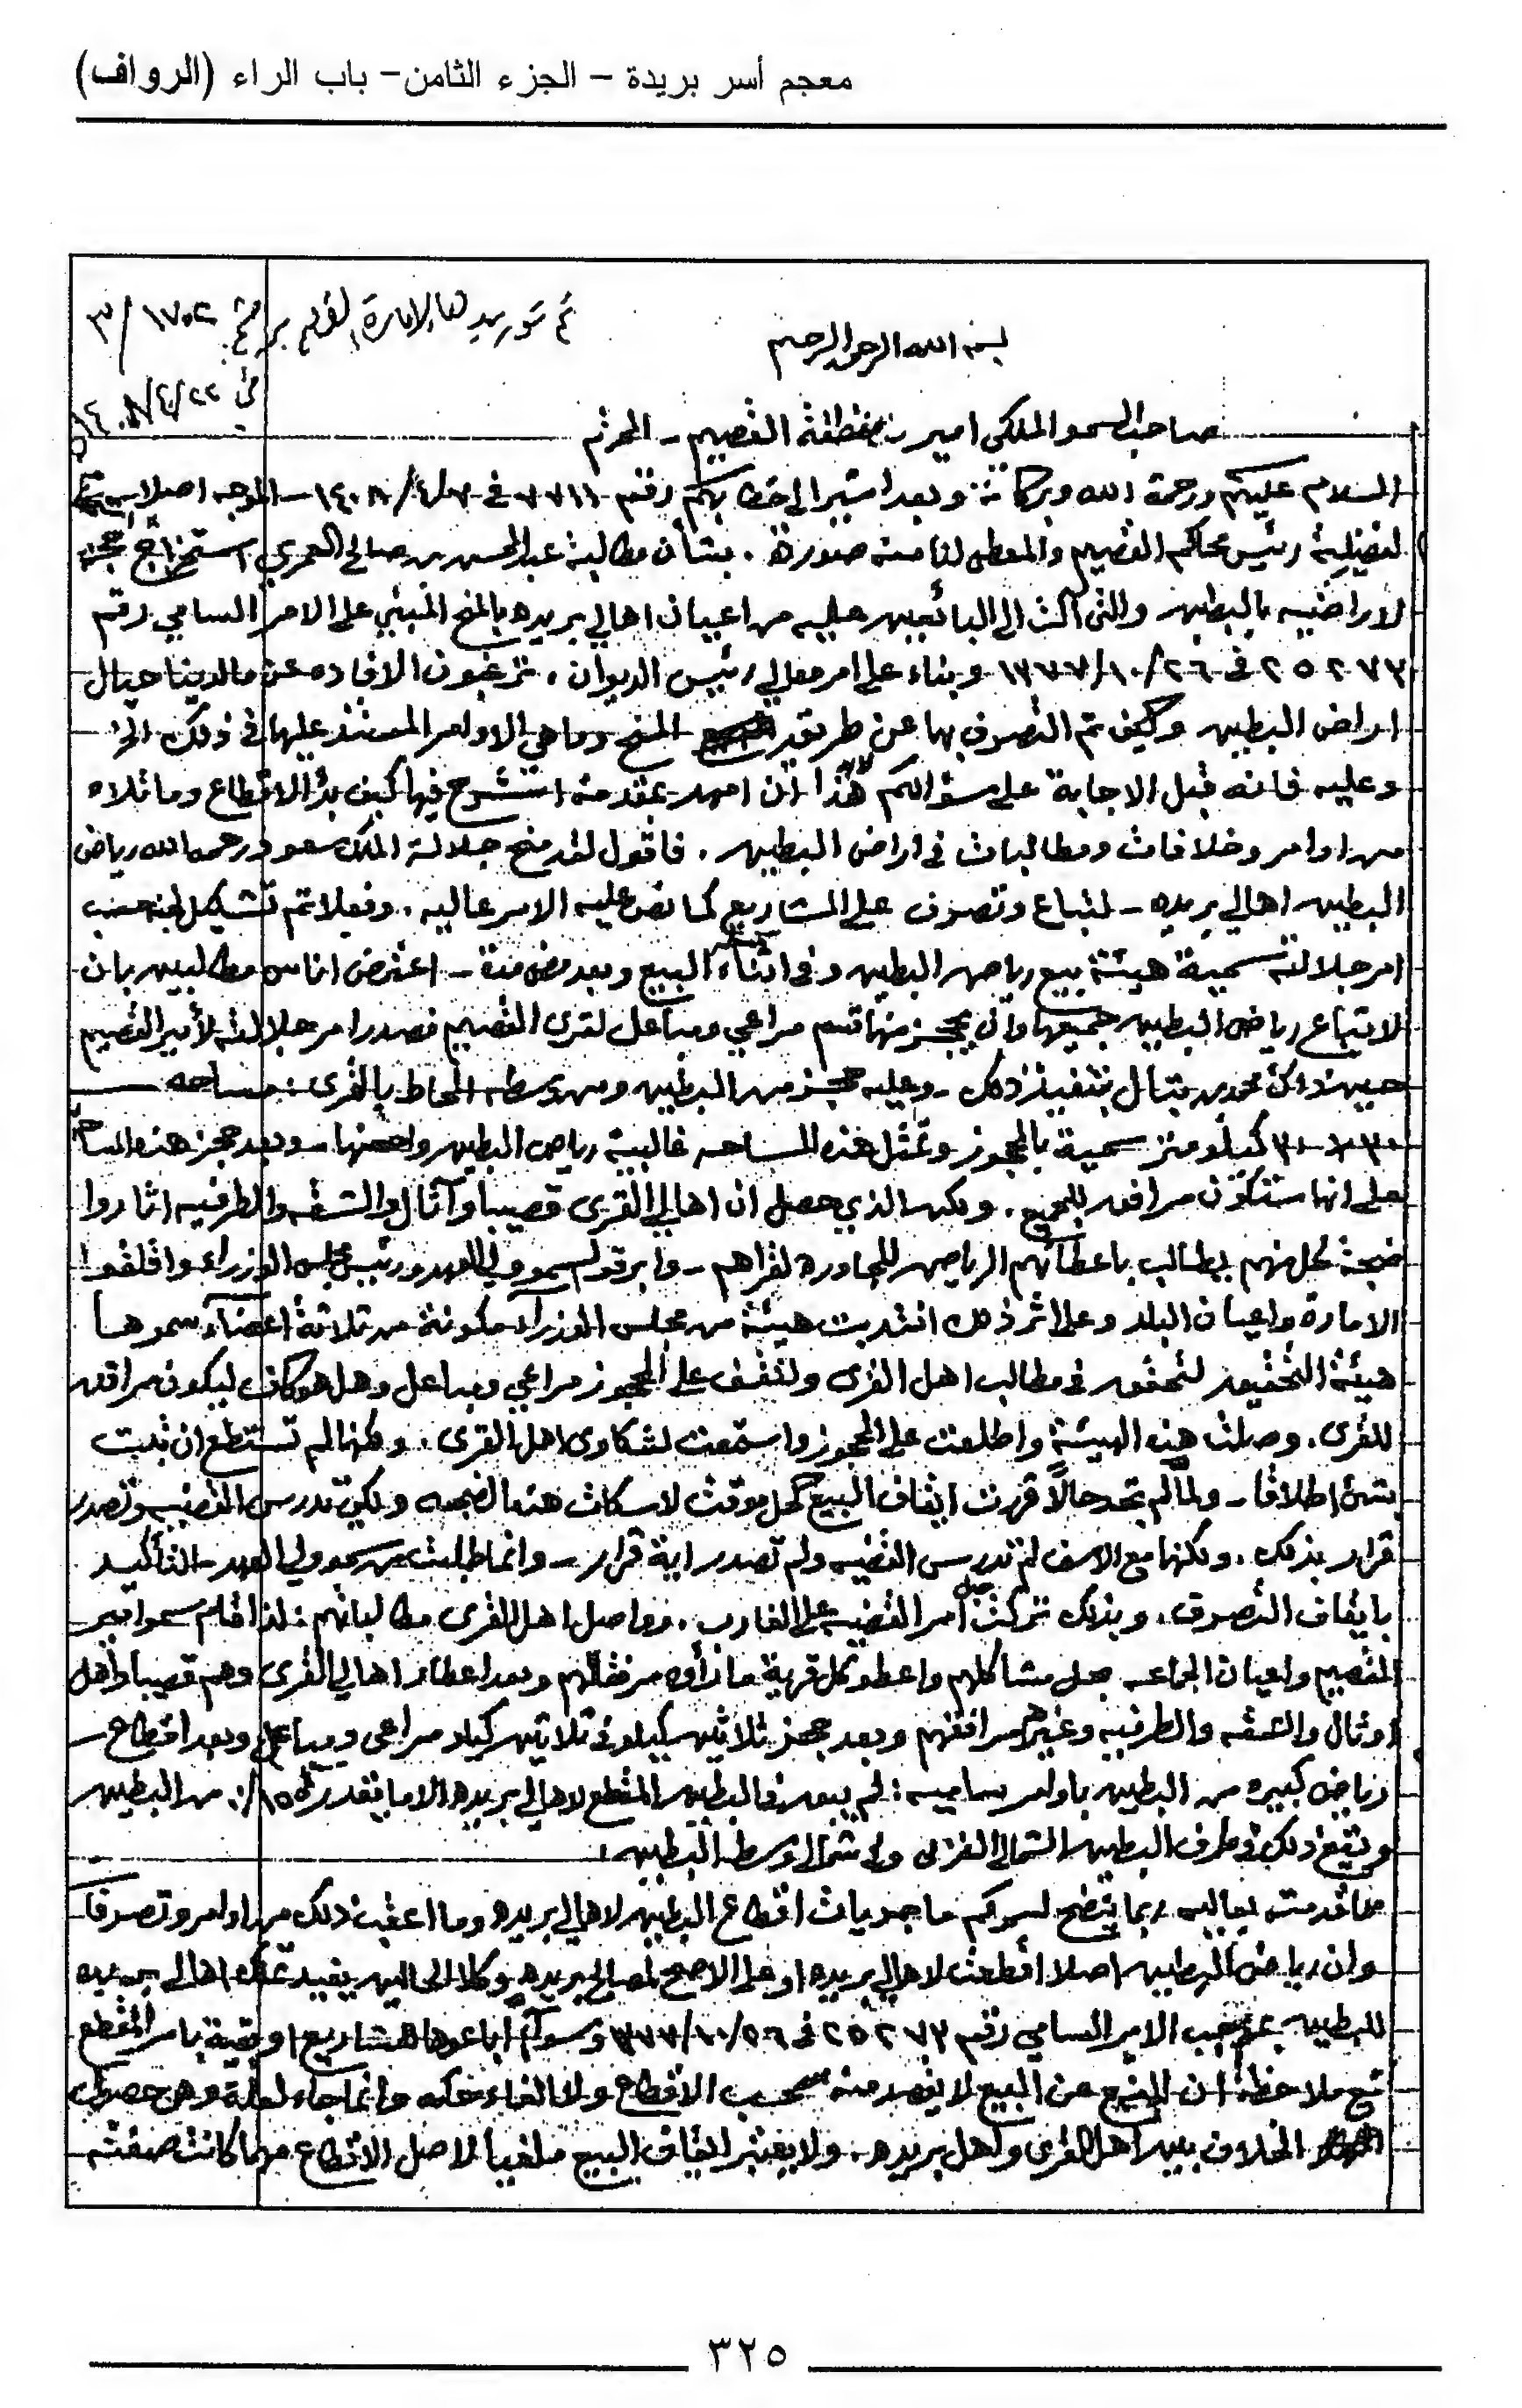 معجم أسر بريدة – الجزء الثامن– باب الراء (الرواف)
تم توريد لها الإمارة القصيم برقم ١٧٠٢/٣
في ٢٢/٤/١٤٠٨
بسم الله الرحمن الرحيم
صاحب السمو الملكي امير منطقة القصيم – المحترم
السلام عليكم ورحمة الله وبركاته وبعد اشير الى خطابكم رقم ٧٧١١ في ٧/٤/١٤٠٨ – الموجه اصلا
لفضيلة رئيس محاكم القصيم والمعطى لنا منه صورة . بشأن مطالبة عبد المحسن بن صالح العمري استخراج حجة
لاراضيه بالبطين والتي آلت الى البائعين عليه من اعيان اهالي بريده بالمنح المبني على الامر السامي رقم
٢٥٢٧٣ في ٢٦/١٠/١٣٧٧ وبناء على امر معالي رئيس الديوان . ترغبون الافاده عن مالدينا حيال
اراض البطين وكيف تم التصرف بها عن طريق المنح وماهي الاوامر المستند عليها في ذلك الخ
وعليه فانه قبل الاجابة على سؤالكم هذا ان امهد بمقدمة استشرح فيها كيف بدأ الاقطاع وما تلاه
من اوامر وخلافات ومطالبات في اراض البطين . فاقول لقد منح جلالة الملك سعود رحمه الله رياض
البطين اهالي بريده – لتباع وتصرف على المشاريع كما نص عليه الامر عاليه . وفعلا تم تشكيل لجنة حسب
امر جلالته سمية هيئة بيع رياض البطين وفي اثناء البيع وبعد مضي مدة – اعترض اناس مطالبين بان
لاتباع رياض البطين جميعها وان يحجز منها قسم مراعي ومباعل لقرى القصيم فصدر امر جلالته لأمير القصيم
حين ذاك محمد بن بتال بتنفيذ ذلك – وعليه حجز من البطين ومن وسطه المحاط بالقرى : مساحه
٣٠ × ٣٠ كيلو متر سمية بالمحجوز وتمثل هذه المساحه غالبية رياض البطين – وبعد حجز هذه المساحه
على انها ستكون مرافق للجميع . ولكن الذي حصل ان اهالي القرى قصيبا وآثال والشقه والطرفيه اثاروا
ضجة كل منهم يطالب باعطائهم الرياض المجاوره لقراهم – وابرقو لسمو ولي العهد ورئيس مجلس الوزراء واقلقوا
الامارة واعيان البلد وعلى اثر ذلك انتدبت هيئة من مجلس الوزراء مكونة من ثلاثة اعضاء سموها
هيئة التحقيق لتحقق في مطالب اهل القرى ولتقف على المحجوز مراعي ومباعل وهل هو كاف ليكون مرافق
للقرى . وصلت هذه الهيئة واطلعت على المحجوز واستمعت لشكاوى اهل القرى . ولكنها لم تستطع ان تبت
بشئ اطلاقا – ولما لم تجد حالاً قررت ايقاف البيع كحل موقت لاسكات هذه الضجه ولكي تدرس القضيه وتصدر
قرار بذلك . ولكنها مع الاسف لم تدرس القضيه ولم تصدر اية قرار – وانما طلبت من سمو ولي العهد – التأكيد
بايقاف التصرف . وبذلك تركت حبل امر القضيه على الغارب . وواصل اهل القرى مطالباتهم : لذا قام سمو امير
القصيم واعيان الجماعه بحل مشاكلهم واعطو كل قرية ما رأوه مرفقا لهم وبعد اعطاء اهالي القرى وهم قصيبا واهل
اوثال والشقه والطرفيه وغيرهم مرافقهم وبعد حجز ثلاثين كيلو في ثلاثين كيلو مراعي ومباعل وبعد اقتطاع –
رياض كبيره من البطين باوامر ساميه : لم يبق في البطين المقطع لاهالي بريده الا ما يقدر ١٥٪ من البطين
ويقع ذلك في طرف البطين الشمالي الغربي وفي شمالي وسط البطين :
ما قدمت بعاليه ربما يتضح لسموكم ماجريات اقطاع البطين لاهالي بريده وما اعقب ذلك من اوامر وتصرفات
وان رياض البطين اصلا اقطعت لاهالي بريده او على الاصح لمصالح بريده وكلا الحالين يفيد تملك اهالي بريده
للبطين بموجب الامر السامي رقم ٢٥٢٧٣ في ٢٦/١٠/١٣٧٧ وسواء اباعوها لمشاريع او بقية باسم المقطع
مع ملاحظة ان المنع عن البيع لا يقصد منه سحب الاقطاع ولا الغاء حكمه وانما جاء لعلة وهي حصول
الخلاف بين اهل القرى واهل بريده . ولا يعتبر ايقاف البيع ملغياً لاصل الاقطاع مهما كانت صفته
٣٢٥